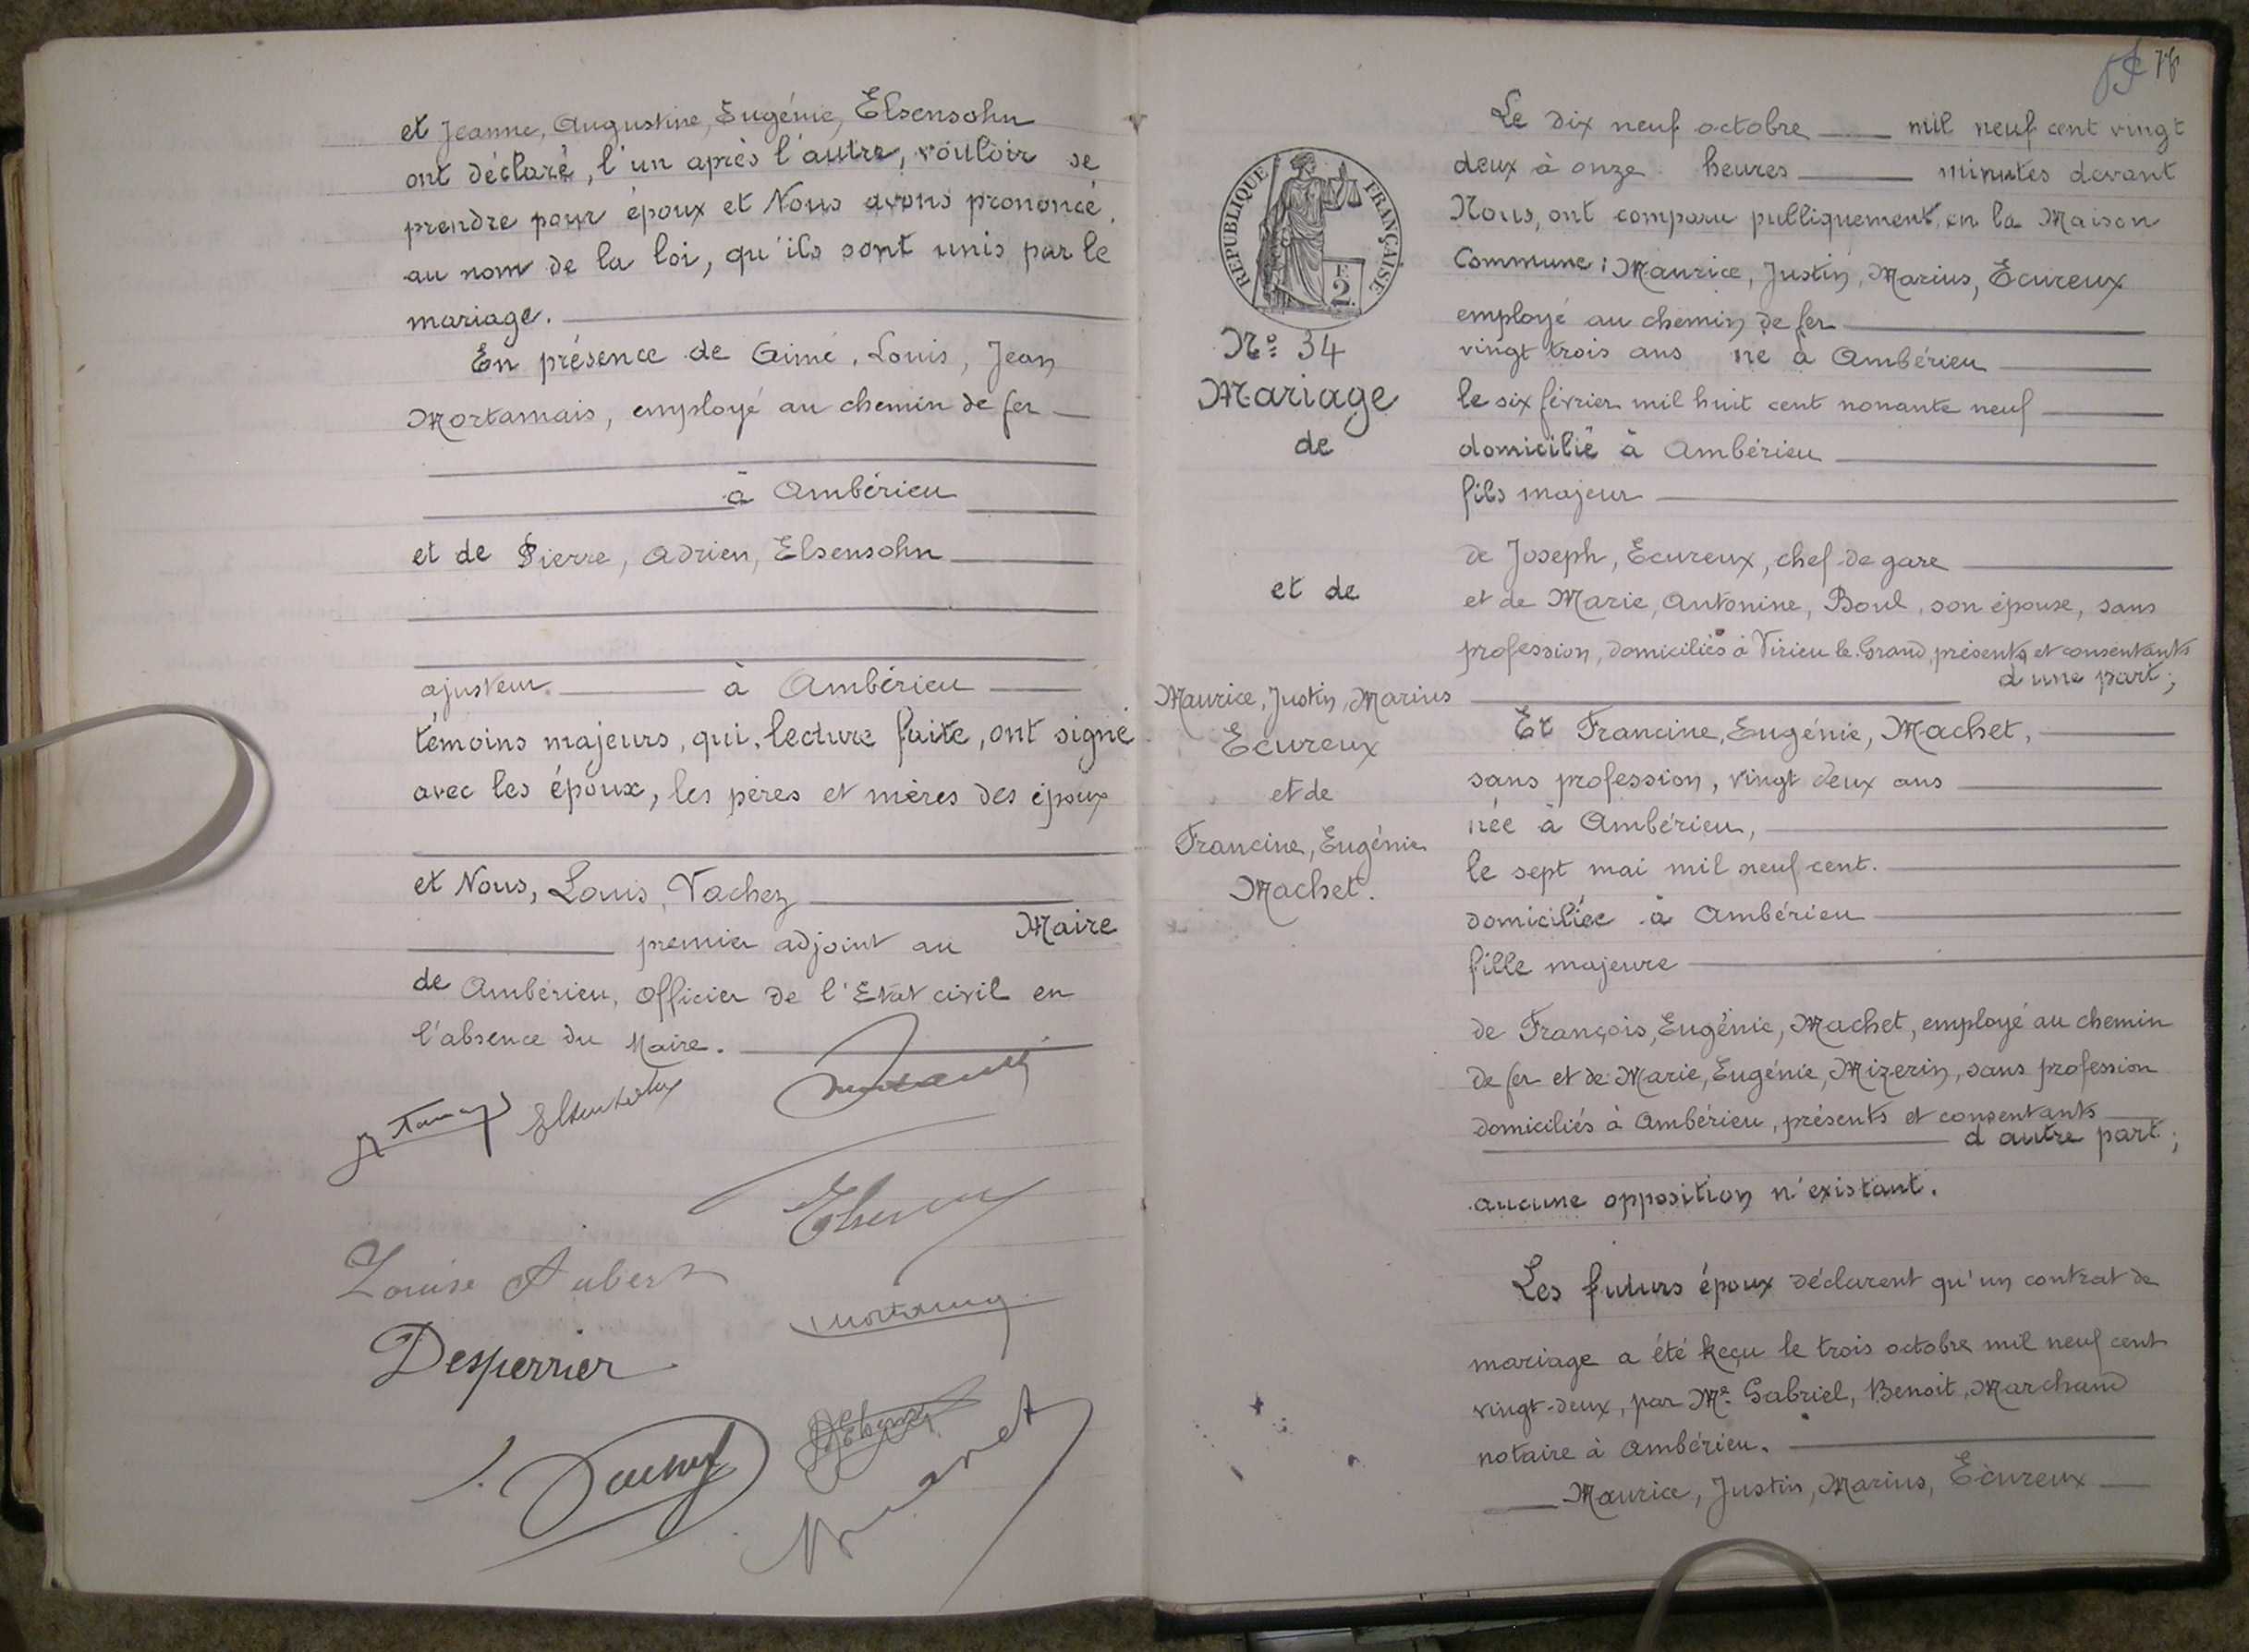 et Jeanne, Augustine, Eugénie, Elsensohn
ont déclaré, l'un après l'autre, vouloir se
prendre pour époux et Nous avons prononcé,
au nom de la loi, qu'ils sont unis par le
mariage.
En présence de Aimé, Louis, Jean
Mortamais, employé au chemin de fer
à Ambérieu
et de Pierre, Adrien, Elsensohn
ajusteur à Ambérieu
témoins majeurs, qui, lecture faite, ont signé
avec les époux, les pères et mères des époux
et Nous, Louis, Vachez
premier adjoint au Maire
de Ambérieu, Officier de l'Etat civil en
l'absence du Maire.
Louise Aubert
Desperrier
Le dix neuf octobre mil neuf cent vingt
deux à onze heures minutes devant
Nous, ont comparu publiquement en la Maison
Commune : Maurice, Justin, Marius, Ecureux
employé au chemin de fer
vingt trois ans né à Ambérieu
le six février mil huit cent nonante neuf
domicilié à Ambérieu
fils majeur
de Joseph, Ecureux, chef de gare
et de Marie, Antonine, Boul, son épouse, sans
profession, domiciliés à Virieu le Grand, présents et consentants
d'une part ;
Et Francine, Eugénie, Machet,
sans profession, vingt deux ans
née à Ambérieu,
le sept mai mil neuf cent.
domiciliée à Ambérieu
fille majeure
de François, Eugénie, Machet, employé au chemin
de fer et de Marie, Eugénie, Mizerin, sans profession
domiciliés à Ambérieu, présents et consentants
d'autre part ;
aucune opposition n'existant.
Les futurs époux déclarent qu'un contrat de
mariage a été reçu le trois octobre mil neuf cent
vingt-deux, par Me Gabriel, Benoit, Marchand
notaire à Ambérieu.
Maurice, Justin, Marius, Ecureux
RÉPUBLIQUE FRANÇAISE
F.
2.
No 34
Mariage
de
et de
Maurice, Justin, Marius
Ecureux
et de
Francine, Eugénie
Machet.